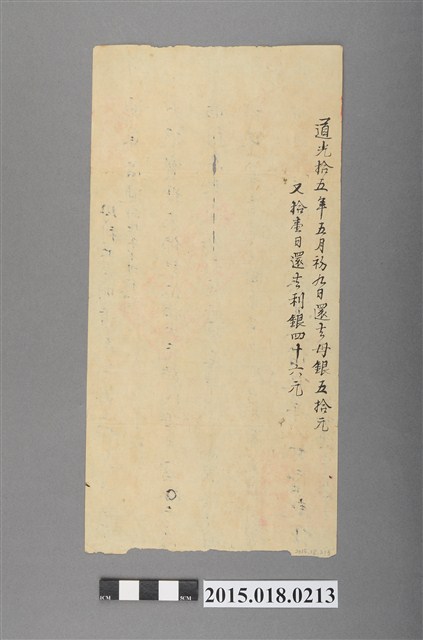 道光拾五年五月初九日還去母銀五拾元
又拾壹日還去利銀四十六元
1CM
5CM
2015.018.0213